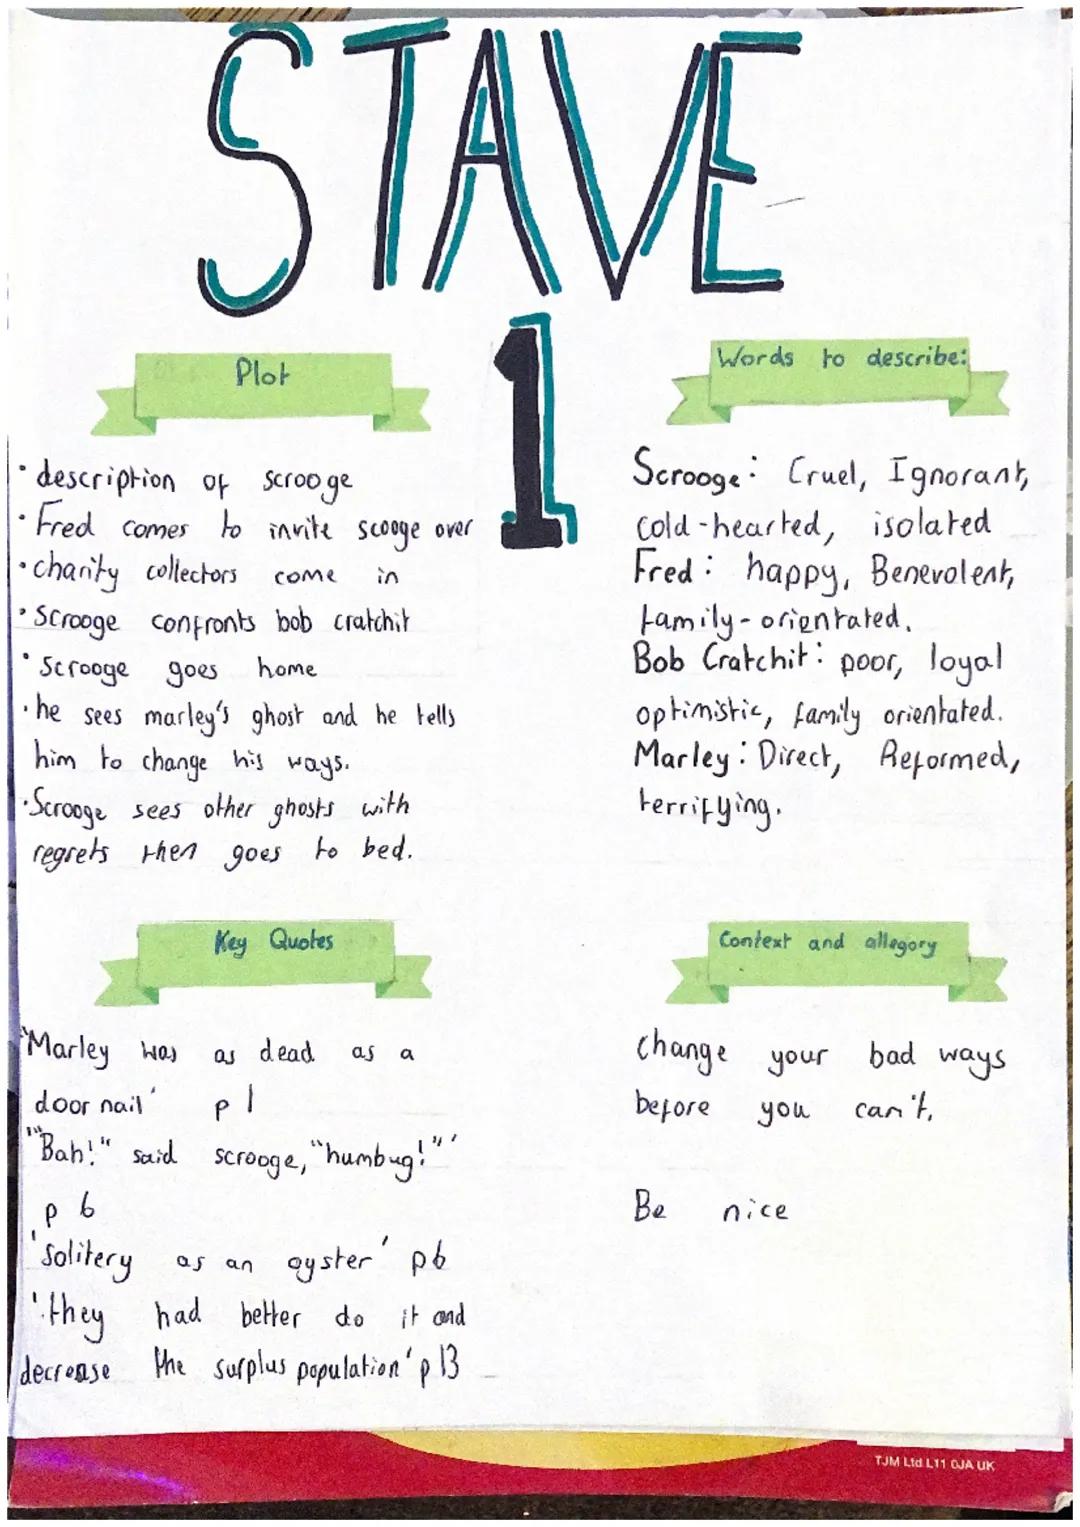 STAVE
1
Plot
• description of scrooge
• Fred comes to invite scooge over
• charity collectors come in
• Scrooge confronts bob cratchit
• Scrooge goes home
• he sees marley's ghost and he tells
him to change his ways.
• Scrooge sees other ghosts with
regrets then goes to bed.
Words to describe:
Scrooge: Cruel, Ignorant,
cold-hearted, isolated
Fred: happy, Benevolent,
family-orientated.
Bob Cratchit: poor, loyal
optimistic, family orientated.
Marley: Direct, Reformed,
terrifying.
Key Quotes
'Marley was as dead as a
door nail' p1
'"Bah!" said scrooge, "humbug!"'
p 6
'Solitery as an oyster' p6
'they had better do it and
decrease the surplus population' p13
Context and allegory
change your bad ways
before you can't.
Be nice
TJM Ltd L11 0JA UK